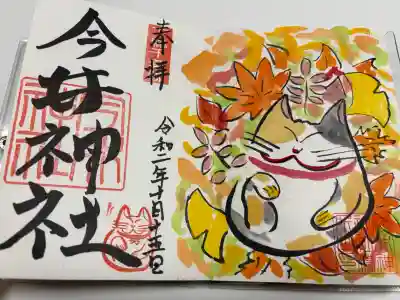 奉拝
令和二年十月十五日
今井神社